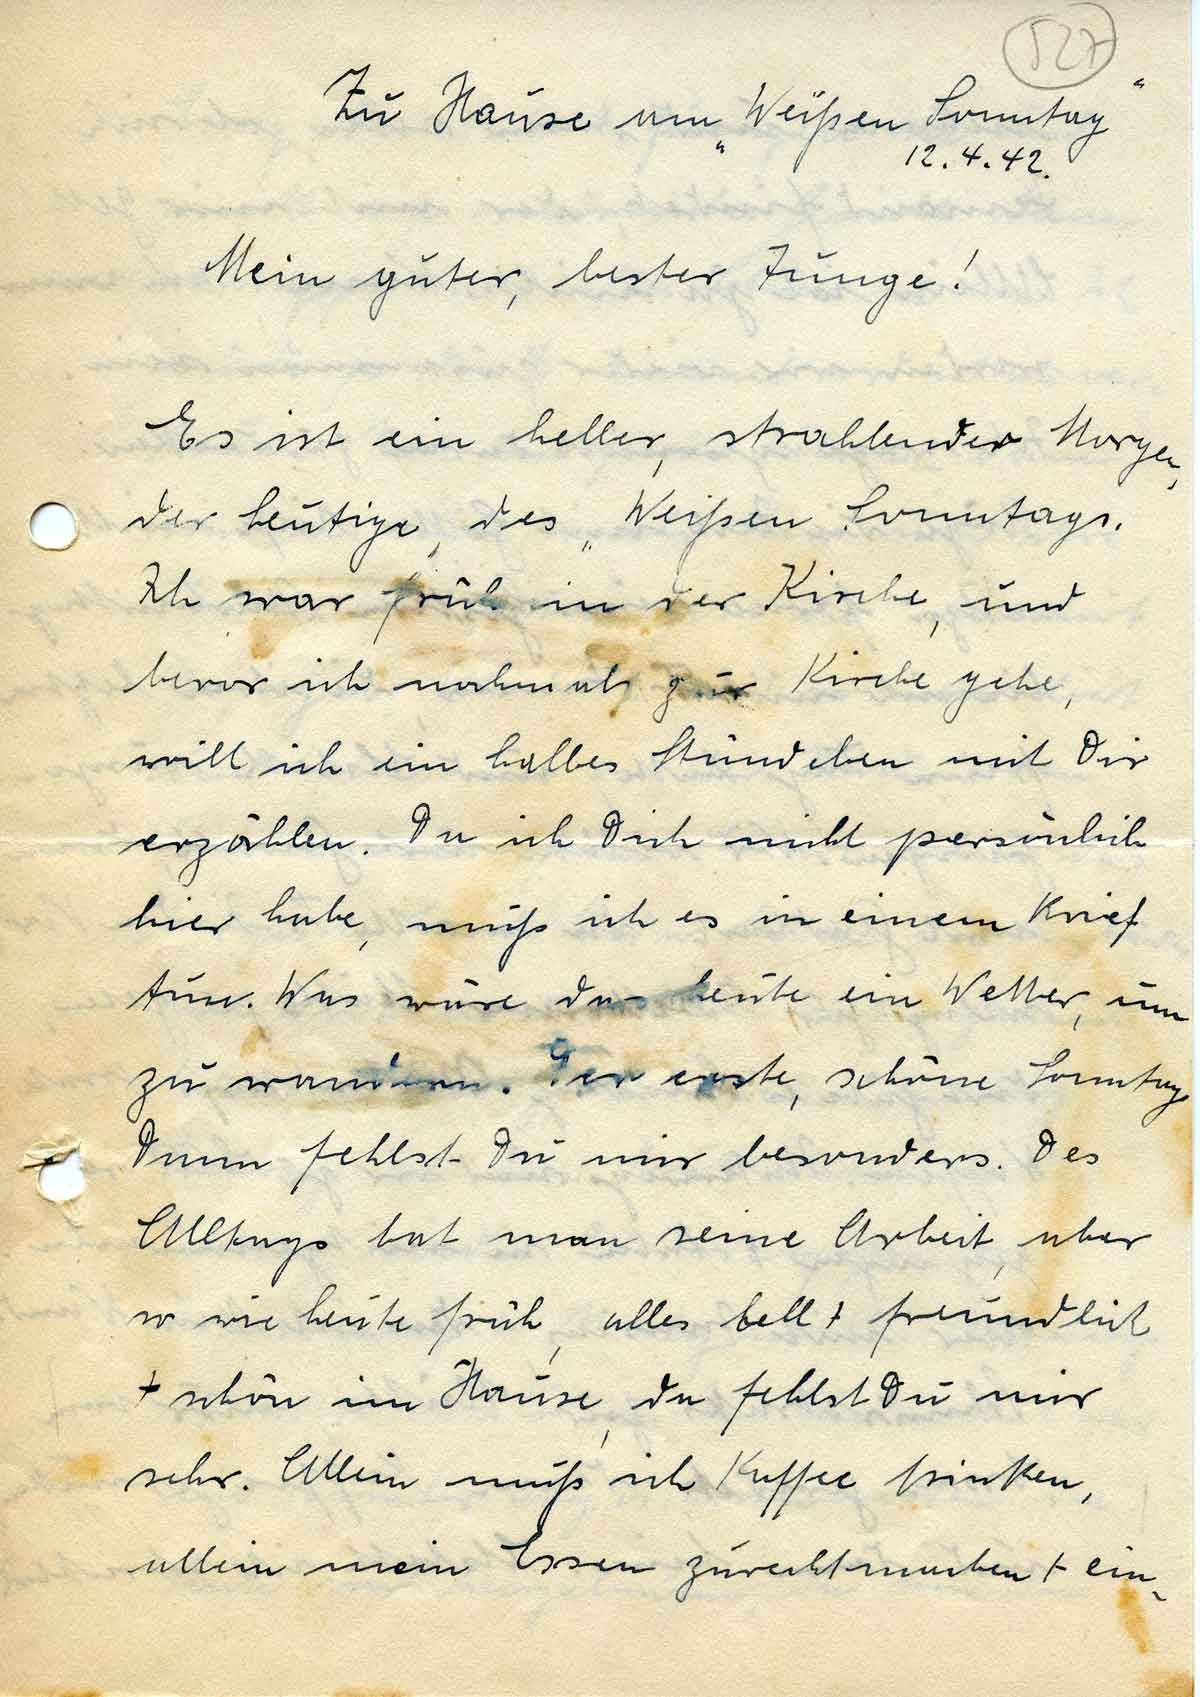 527
Zu Hause am „Weißen Sonntag“
12.4.42.
Mein guter, bester Junge!
Es ist ein heller, strahlender Morgen,
der heutige, des „Weißen Sonntags.
Ich war früh in der Kirche, und
bevor ich nochmals zur Kirche gehe,
will ich ein halbes Stündchen mit Dir
erzählen. Da ich Dich nicht persönlich
hier habe, muß ich es in einem Brief
tun. Was wäre das heute ein Wetter, um
zu wandern. Der erste, schöne Sonntag.
Dann fehlst Du mir besonders. Des
Alltags hat man seine Arbeit, aber
so wie heute früh, alles hell + freundlich
+ schön im Hause, da fehlst Du mir
sehr. Allein muß ich Kaffee trinken,
allein mein Essen zurechtmachen + ein-